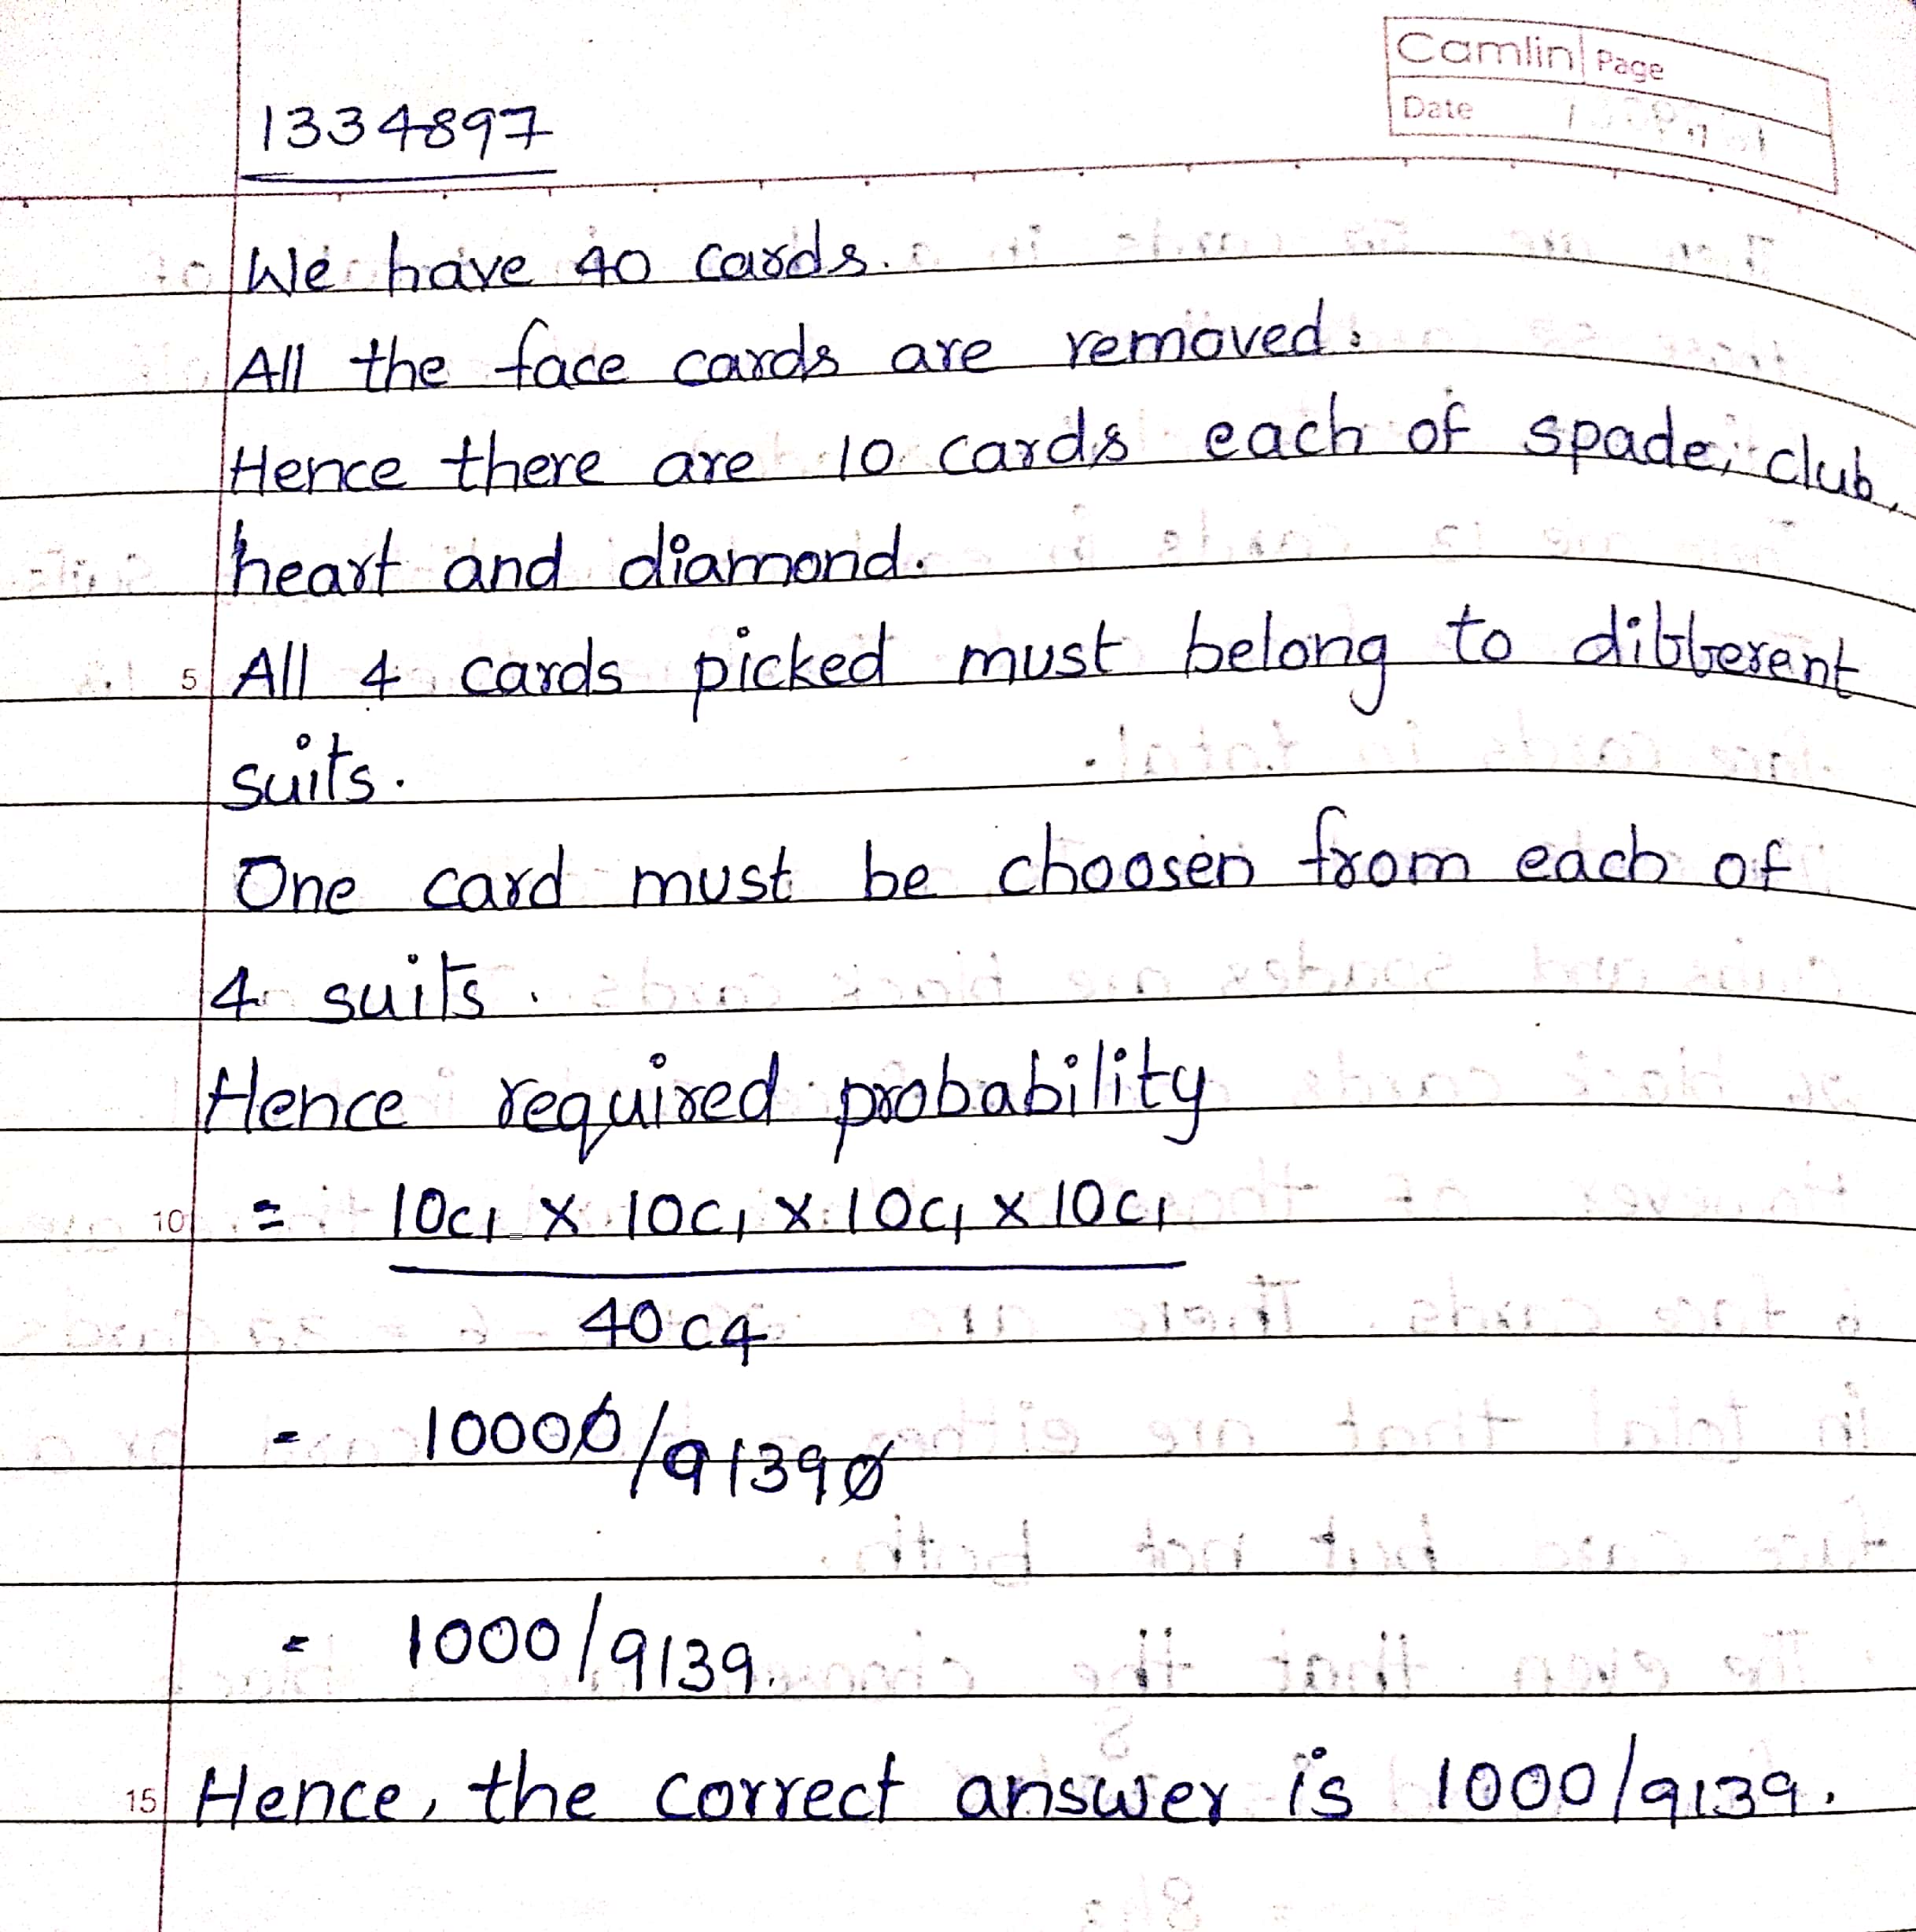 Camlin Page
Date
1334897
We have 40 cards.
All the face cards are removed.
Hence there are 10 cards each of spade, club,
heart and diamond.
5 All 4 cards picked must belong to different
suits.
One card must be choosen from each of
4 suits.
Hence required probability
10 = 10C1 x 10C1 x 10C1 x 10C1
40C4
= 10000/91390
= 1000/9139.
15 Hence, the correct answer is 1000/9139.